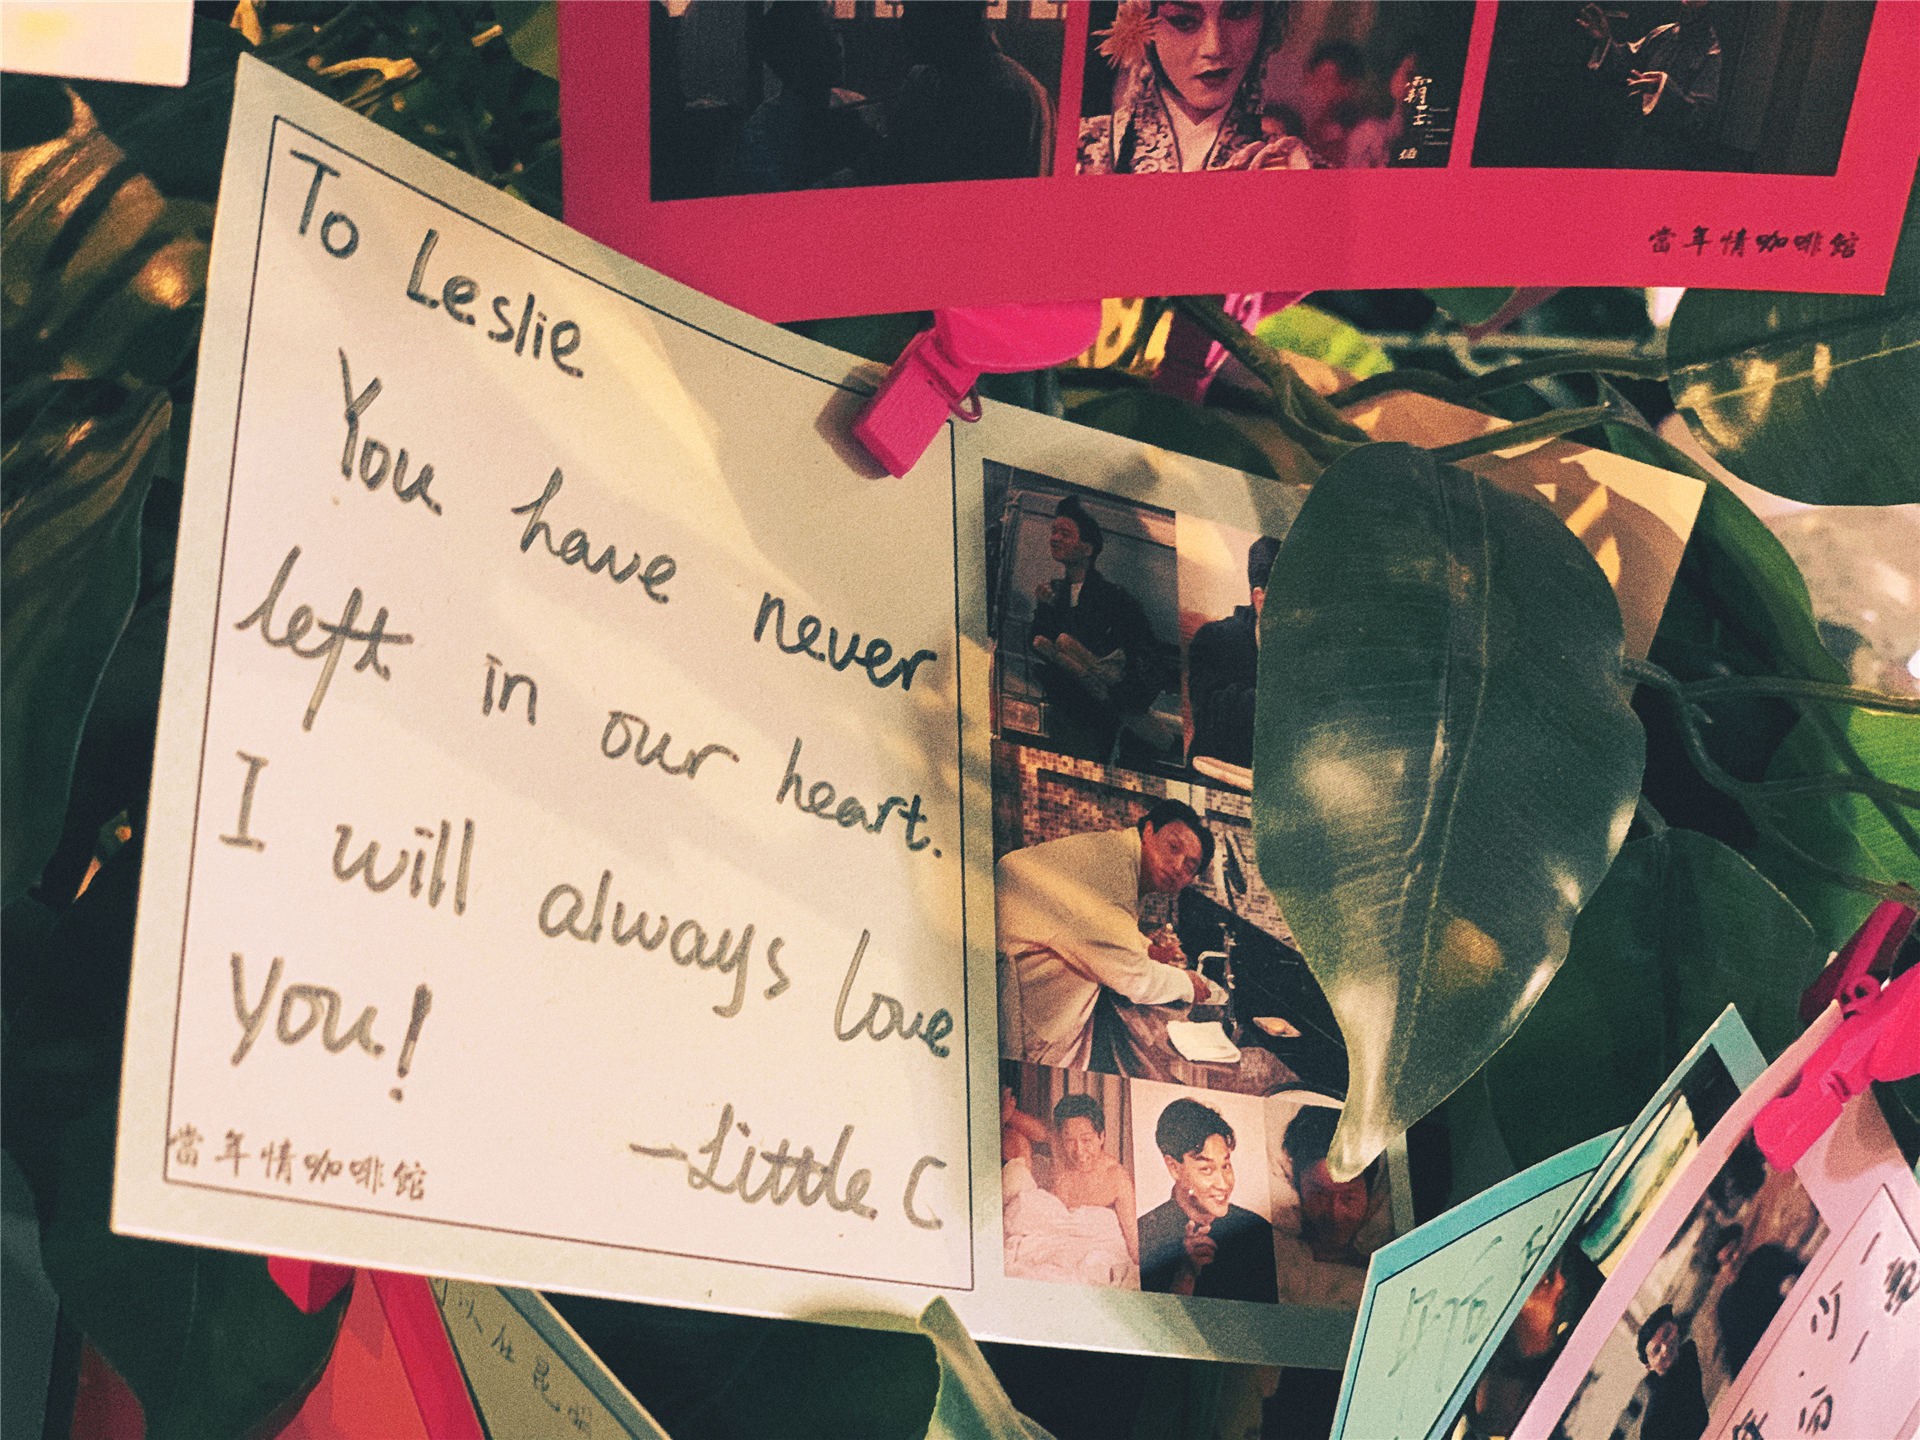 當年情咖啡館
To Leslie
You have never
left in our heart.
I will always love
you!
—Little C
當年情咖啡館